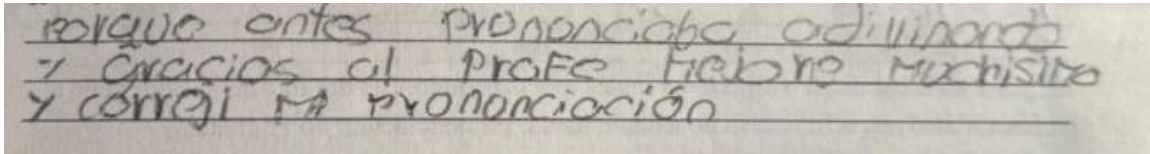 porque antes prononciaba adivinando
y Gracias al Profe mejore muchisimo
y corregi mi prononciación